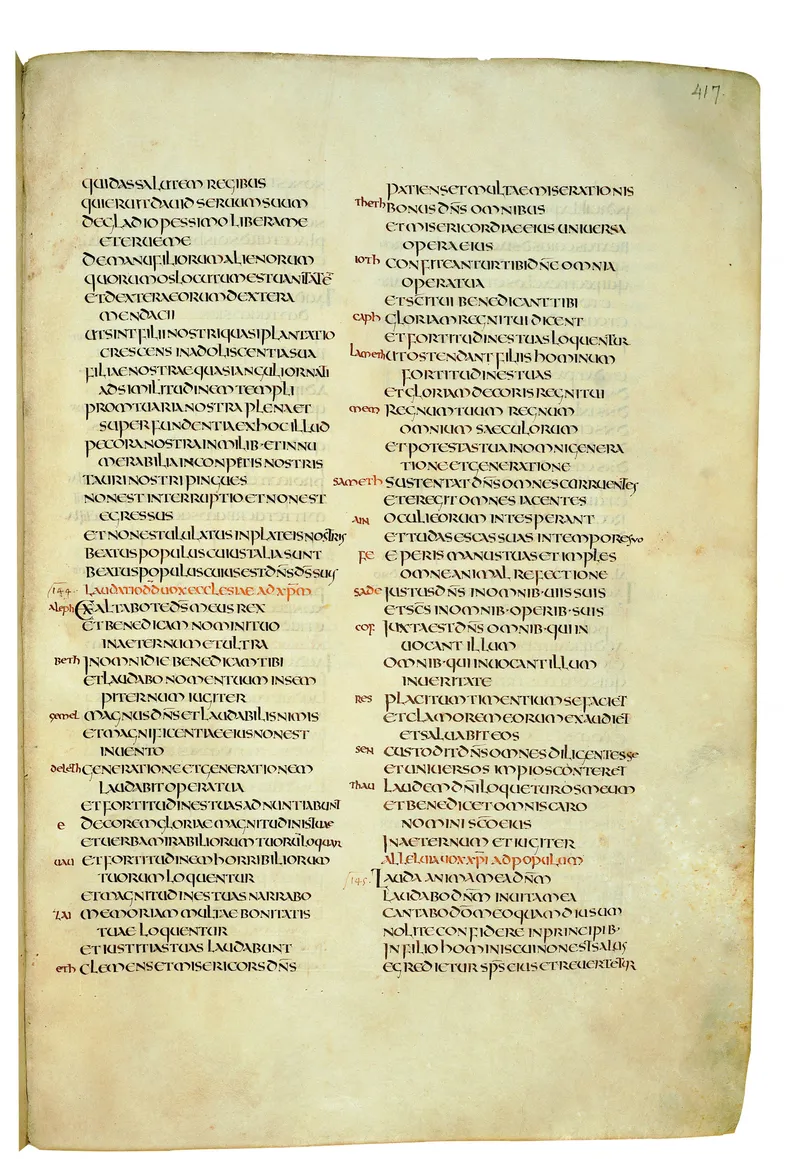 417.
QUI DAS SALUTEM REGIBUS
QUI ERUIT DAUID SERUUM SUUM
DE GLADIO PESSIMO LIBERA ME
ET ERUE ME
DE MANU FILIORUM ALIENORUM
QUORUM OS LOCUTUM EST UANITATĒ
ET DEXTERA EORUM DEXTERA
MENDACII
UT SINT FILII NOSTRI QUASI PLANTATIO
CRESCENS IN ADOLISCENTIA SUA
FILIAE NOSTRAE QUASI ANGULI ORNATI
AD SIMILITUDINEM TEMPLI
PROMTUARIA NOSTRA PLENA ET
SUPERFUNDENTIA EX HOC ILLUD
PECORA NOSTRA IN MILIB· ET INNU
MERABILIA IN CONPETIS NOSTRIS
TAURI NOSTRI PINGUES
NON EST INTERRUPTIO ET NON EST
EGRESSUS
ET NON EST ULULATUS IN PLATEIS NOSTRIS
BEATUS POPULUS CUIUS TALIA SUNT
BEATUS POPULUS CUIUS EST DN̄S DS̄ SUUS
144. LAUDATIO DD̄ UOX ECCLESIAE AD XP̄M
Aleph EXALTABO TE DS̄ MEUS REX
ET BENEDICAM NOMINI TUO
IN AETERNUM ET ULTRA
BETH IN OMNI DIE BENEDICAM TIBI
ET LAUDABO NOMEN TUUM IN SEM
PITERNUM IUGITER
gemel MAGNUS DN̄S ET LAUDABILIS NIMIS
ET MAGNIFICENTIAE EIUS NON EST
INUENTO
deleth GENERATIONE ET GENERATIONEM
LAUDABIT OPERA TUA
ET FORTITUDINES TUAS ADNUNTIABUNT
E DECOREM GLORIAE MAGNITUDINIS TUAE
ET UERBA MIRABILIORUM TUORŪ LOQUAR
UAU ET FORTITUDINEM HORRIBILIORUM
TUORUM LOQUENTUR
ET MAGNITUDINES TUAS NARRABO
ZAI MEMORIAM MULTAE BONITATIS
TUAE LOQUENTUR
ET IUSTITIAS TUAS LAUDABUNT
eth CLEMENS ET MISERICORS DN̄S
PATIENS ET MULTAE MISERATIONIS
Theth BONUS DN̄S OMNIBUS
ET MISERICORDIAE EIUS UNIUERSA
OPERA EIUS
IOTH CONFITEANTUR TIBI DN̄E OMNIA
OPERA TUA
ET SC̄I TUI BENEDICANT TIBI
CAPH GLORIAM REGNI TUI DICENT
ET FORTITUDINES TUAS LOQUENTUR
Lameth UT OSTENDANT FILIIS HOMINUM
FORTITUDINES TUAS
ET GLORIAM DECORIS REGNI TUI
MEM REGNUM TUUM REGNUM
OMNIUM SAECULORUM
ET POTESTAS TUA IN OMNI GENERA
TIONE ET GENERATIONE
SAMETH SUSTENTAT DN̄S OMNES CORRUENTES
ET EREGIT OMNES IACENTES
AIN OCULI EORUM IN TE SPERANT
ET TU DAS ESCAS SUAS IN TEMPORE SUO
FE EPERIS MANUS TUAS ET IMPLES
OMNE ANIMAL REFECTIONE
SADE IUSTUS DN̄S IN OMNIB· UIIS SUIS
ET SC̄S IN OMNIB· OPERIB· SUIS
COF IUXTA EST DN̄S OMNIB· QUI IN
UOCANT ILLUM
OMNIB· QUI INUOCANT ILLUM
IN UERITATE
RES PLACITUM TIMENTIUM SE FACIET
ET CLAMOREM EORUM EXAUDIET
ET SALUABIT EOS
SEN CUSTODIT DN̄S OMNES DILIGENTES SE
ET UNIUERSOS IMPIOS CONTERET
THAU LAUDEM DN̄I LOQUETUR OS MEUM
ET BENEDICET OMNIS CARO
NOMINI SC̄O EIUS
IN AETERNUM ET IUGITER
ALLELUIA UOX XP̄I AD POPULUM
145. LAUDA ANIMA MEA DN̄M
LAUDABO DN̄M IN UITA MEA
CANTABO DŌ MEO QUAMDIU SUM
NOLITE CONFIDERE IN PRINCIPIB·
IN FILIO HOMINIS CUI NON EST SALUS
EGREDIETUR SPS̄ EIUS ET REUERTETUR